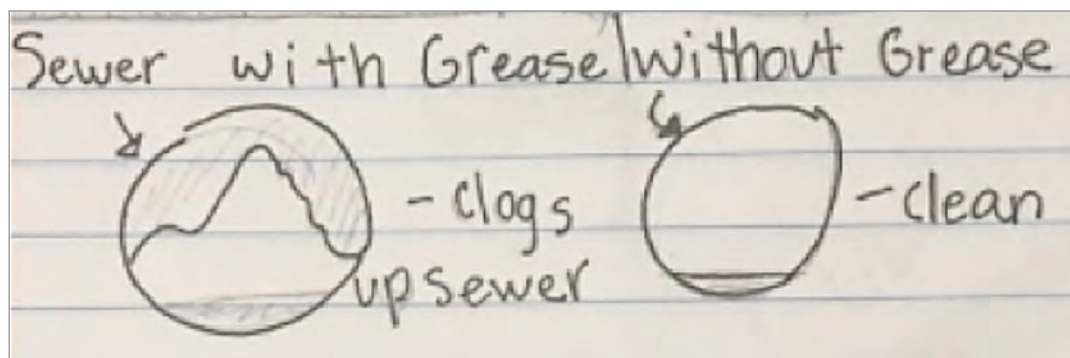 Sewer with Grease|without Grease
- clogs
up sewer
- clean